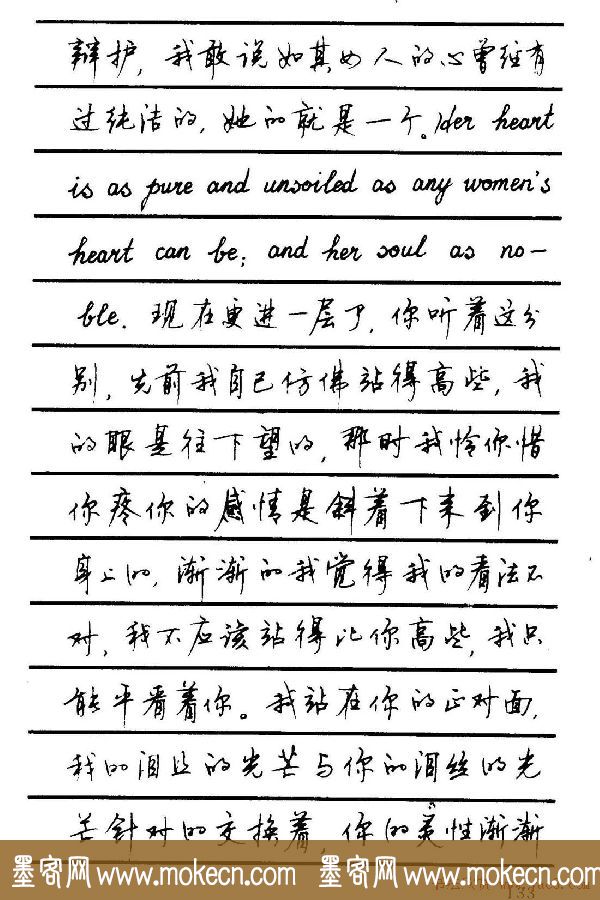 辩护，我敢说如其女人的心曾经有
过纯洁的，她的就是一个。Her heart
is as pure and unsoiled as any women's
heart can be; and her soul as no-
ble. 现在更进一层了，你听着这分
别，先前我自己仿佛站得高些，我
的眼是往下望的，那时我怜你惜
你疼你的感情是斜着下来到你
身上的，渐渐的我觉得我的看法不
对，我不应该站得比你高些，我只
能平看着你。我站在你的正对面，
我的泪丝的光芒与你的泪丝的光
芒针对的交换着，你的灵性渐渐
墨客网 www.mokecn.com 墨客网 www.mokecn.com
133